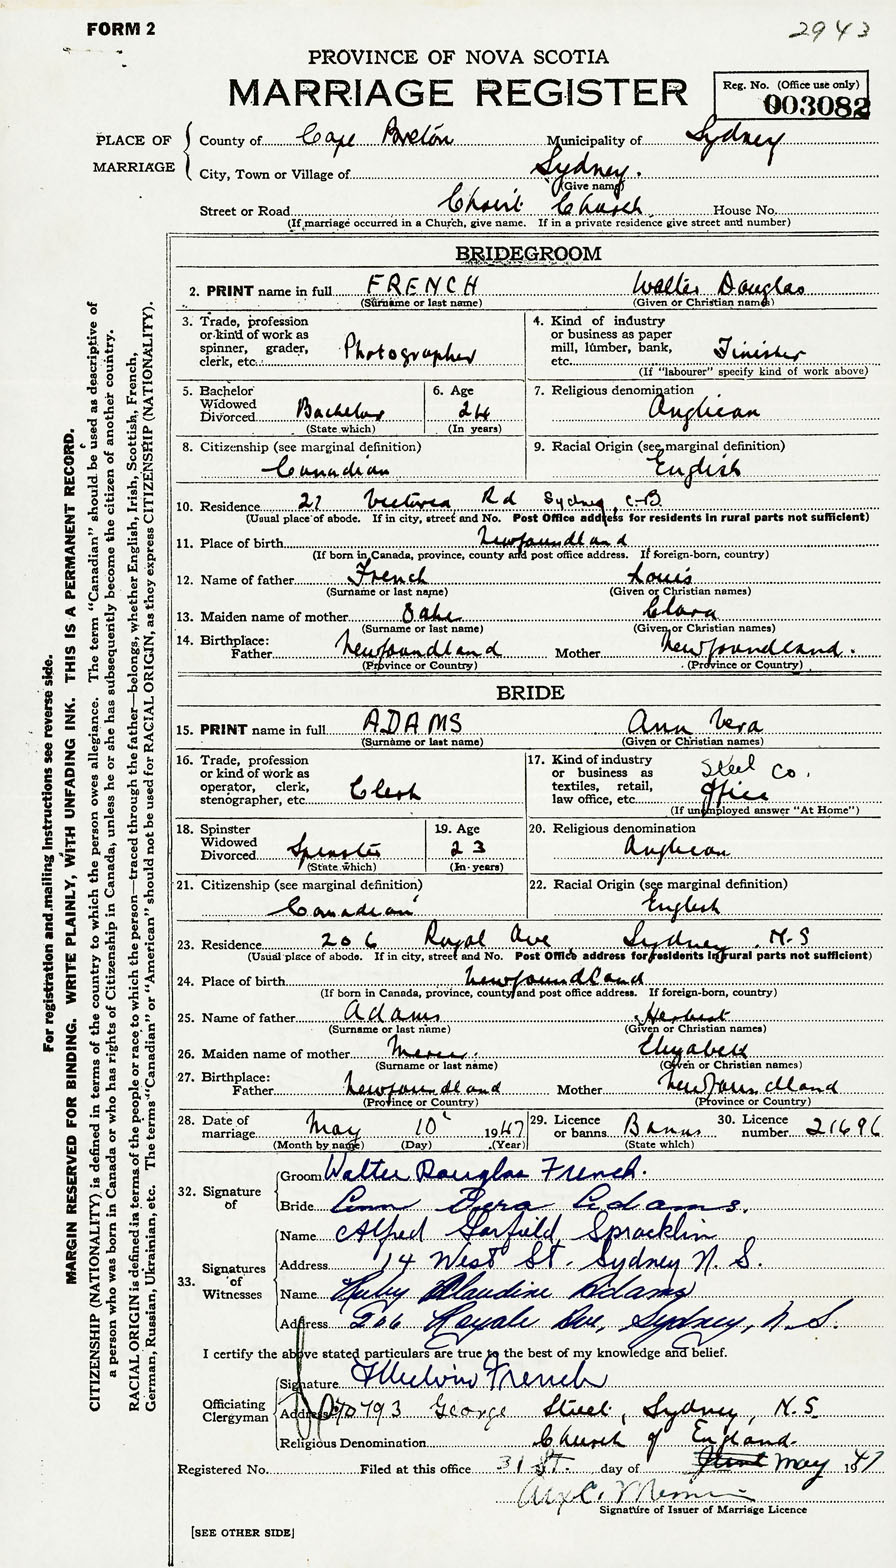 FORM 2
2943
PROVINCE OF NOVA SCOTIA
MARRIAGE REGISTER
Reg. No. (Office use only)
003082
PLACE OF MARRIAGE
County of Cape Breton Municipality of Sydney
City, Town or Village of Sydney.
(Give name)
Street or Road Christ Church House No.
(If marriage occurred in a Church, give name. If in a private residence give street and number)
BRIDEGROOM
2. PRINT name in full FRENCH Walter Douglas
(Surname or last name) (Given or Christian names)
3. Trade, profession or kind of work as spinner, grader, clerk, etc. Photographer
4. Kind of industry or business as paper mill, lumber, bank, etc. Finisher
(If "labourer" specify kind of work above)
5. Bachelor Widowed Divorced Bachelor
(State which)
6. Age 24
(In years)
7. Religious denomination Anglican
8. Citizenship (see marginal definition) Canadian
9. Racial Origin (see marginal definition) English
10. Residence 21 Victoria Rd Sydney, C.B.
(Usual place of abode. If in city, street and No. Post Office address for residents in rural parts not sufficient)
11. Place of birth Newfoundland
(If born in Canada, province, county and post office address. If foreign-born, country)
12. Name of father French Louis
(Surname or last name) (Given or Christian names)
13. Maiden name of mother Oake Clara
(Surname or last name) (Given or Christian names)
14. Birthplace: Father Newfoundland Mother Newfoundland.
(Province or Country) (Province or Country)
BRIDE
15. PRINT name in full ADAMS Ann Vera
(Surname or last name) (Given or Christian names)
16. Trade, profession or kind of work as operator, clerk, stenographer, etc. Clerk
17. Kind of industry or business as textiles, retail, law office, etc. Steel Co. Office
(If unemployed answer "At Home")
18. Spinster Widowed Divorced Spinster
(State which)
19. Age 23
(In years)
20. Religious denomination Anglican
21. Citizenship (see marginal definition) Canadian
22. Racial Origin (see marginal definition) English
23. Residence 206 Royal Ave Sydney N.S
(Usual place of abode. If in city, street and No. Post Office address for residents in rural parts not sufficient)
24. Place of birth Newfoundland
(If born in Canada, province, county and post office address. If foreign-born, country)
25. Name of father Adams Herbert
(Surname or last name) (Given or Christian names)
26. Maiden name of mother Mercer Elizabeth
(Surname or last name) (Given or Christian names)
27. Birthplace: Father Newfoundland Mother Newfoundland
(Province or Country) (Province or Country)
28. Date of marriage May 10 1947
(Month by name) (Day) (Year)
29. Licence or banns Banns
(State which)
30. Licence number 21696
32. Signature of
Groom Walter Douglas French.
Bride Ann Vera Adams.
33. Signatures of Witnesses
Name Alfred Garfield Spracklin
Address 14 West St. Sydney N.S.
Name Ruby Claudine Adams
Address 206 Royale Ave, Sydney, N.S.
I certify the above stated particulars are true to the best of my knowledge and belief.
Officiating Clergyman
Signature Melvin French
Address 793 George Street, Sydney, N.S.
Religious Denomination Church of England.
Registered No. Filed at this office 31st. day of May 1947
Signature of Issuer of Marriage Licence
[SEE OTHER SIDE]
For registration and mailing instructions see reverse side.
MARGIN RESERVED FOR BINDING. WRITE PLAINLY, WITH UNFADING INK. THIS IS A PERMANENT RECORD.
CITIZENSHIP (NATIONALITY) is defined in terms of the country to which the person owes allegiance. The term "Canadian" should be used as descriptive of
a person who was born in Canada or who has rights of Citizenship in Canada, unless he or she has subsequently become the citizen of another country.
RACIAL ORIGIN is defined in terms of the people or race to which the person—traced through the father—belongs, whether English, Irish, Scottish, French,
German, Russian, Ukrainian, etc. The terms "Canadian" or "American" should not be used for RACIAL ORIGIN, as they express CITIZENSHIP (NATIONALITY).